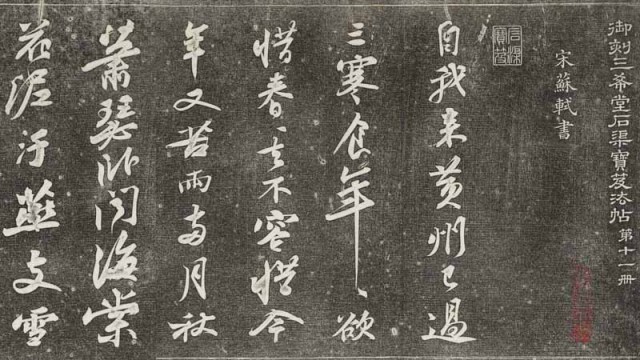 御刻三希堂石渠寶笈法帖第十一册
宋蘇軾書
石渠寶笈
自我來黃州已過
三寒食年〻欲
惜春〻去不容惜今
年又苦雨兩月秋
蕭瑟卧聞海棠
花泥汙燕支雪